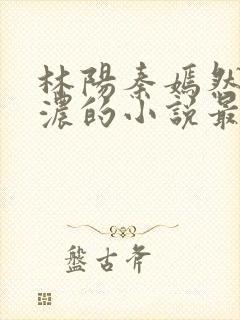 林陽秦嫣然
濃的小說最
盤古斧